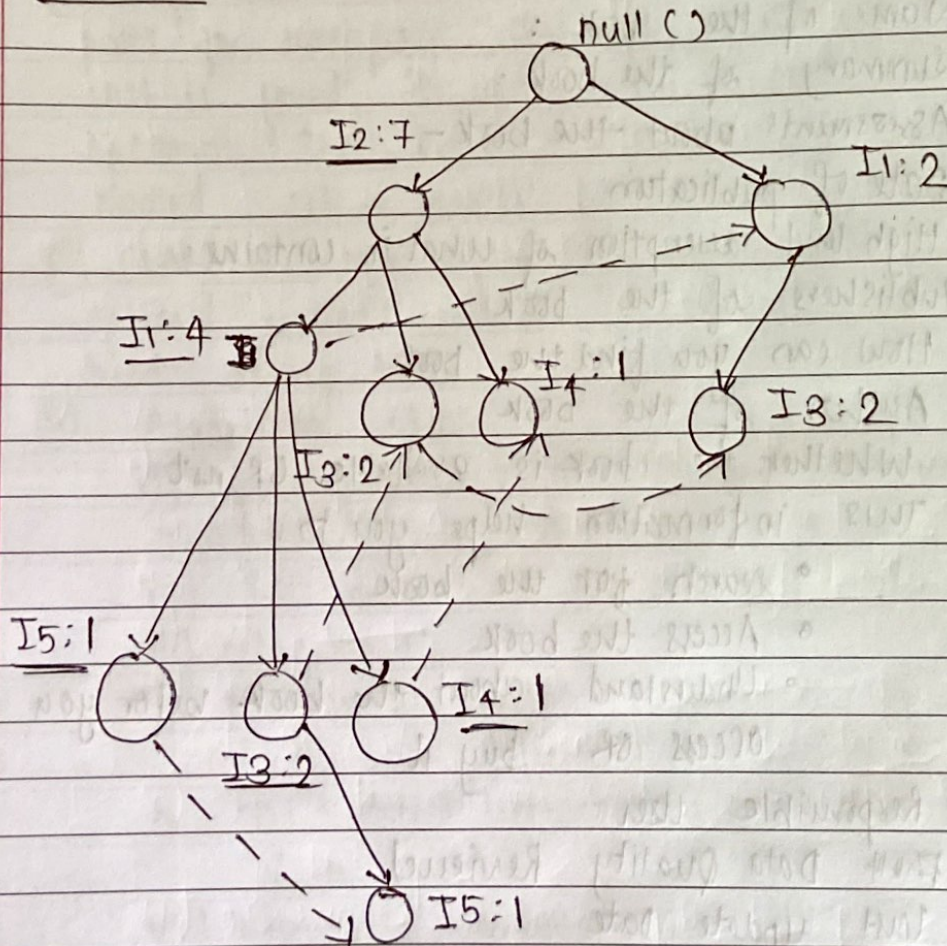 null ()
I2:7
I1:2
I1:4
I4:1
I3:2
I3:2
I5:1
I4:1
I3:2
I5:1